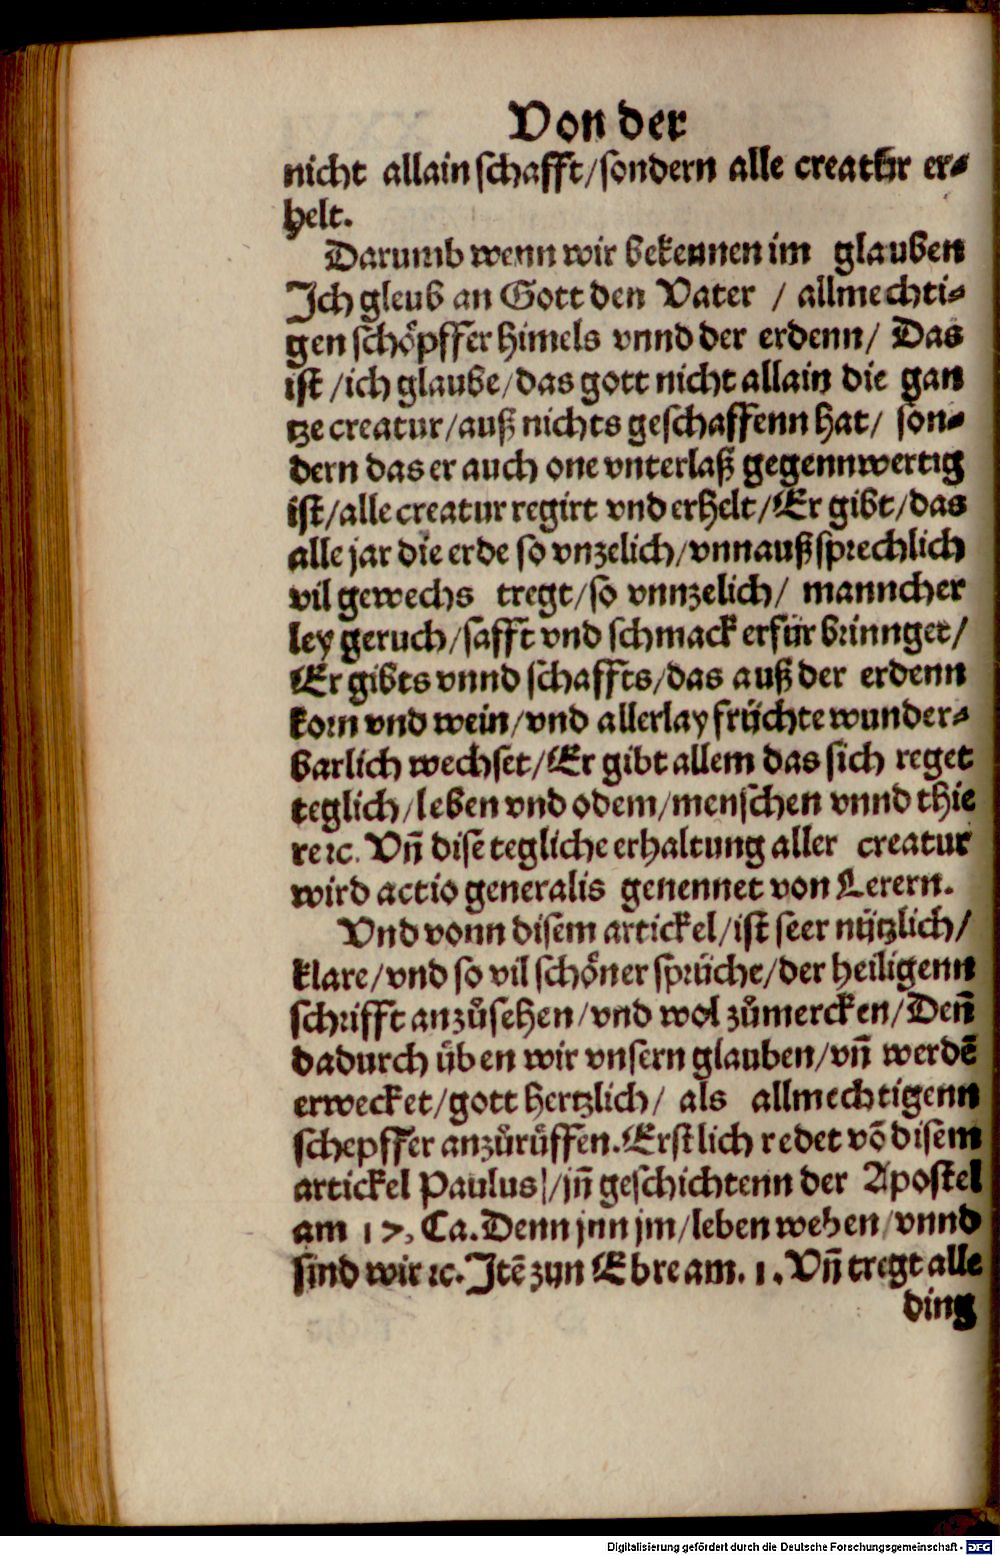 Von der
nicht allain schafft/sondern alle creatur er-
helt.
Darumb wenn wir bekennen im glauben
Ich gleub an Gott den Vater / allmechti-
gen schöpffer himels vnnd der erdenn/ Das
ist /ich glaube/das gott nicht allain die gan
tze creatur/auß nichts geschaffenn hat/ son-
dern das er auch one vnterlaß gegennwertig
ist/alle creatur regirt vnd erhelt/Er gibt/das
alle jar die erde so vnzelich/vnnaußsprechlich
vil gewechs tregt/so vnnzelich/ manncher
ley geruch/safft vnd schmack erfür brinnget/
Er gibts vnnd schaffts/das auß der erdenn
korn vnd wein/vnd allerlay früchte wunder-
barlich wechset/Er gibt allem das sich reget
teglich/leben vnd odem/menschen vnnd thie
re ꝛc. Vñ dise tegliche erhaltung aller creatur
wird actio generalis genennet von Lerern.
Vnd vonn disem artickel/ist seer nützlich/
klare/vnd so vil schöner sprüche/der heiligenn
schrifft anzůsehen/vnd wol zůmercken/Deñ
dadurch üben wir vnsern glauben/vñ werdẽ
erwecket/gott hertzlich/ als allmechtigenn
schepffer anzůrüffen.Erstlich redet võ disem
artickel Paulus/jñ geschichtenn der Apostel
am 17. Ca. Denn jnn jm/leben weben/vnnd
sind wir ꝛc. Itẽ zun Ebream. 1. Vñ tregt alle
ding
Digitalisierung gefördert durch die Deutsche Forschungsgemeinschaft - DFG